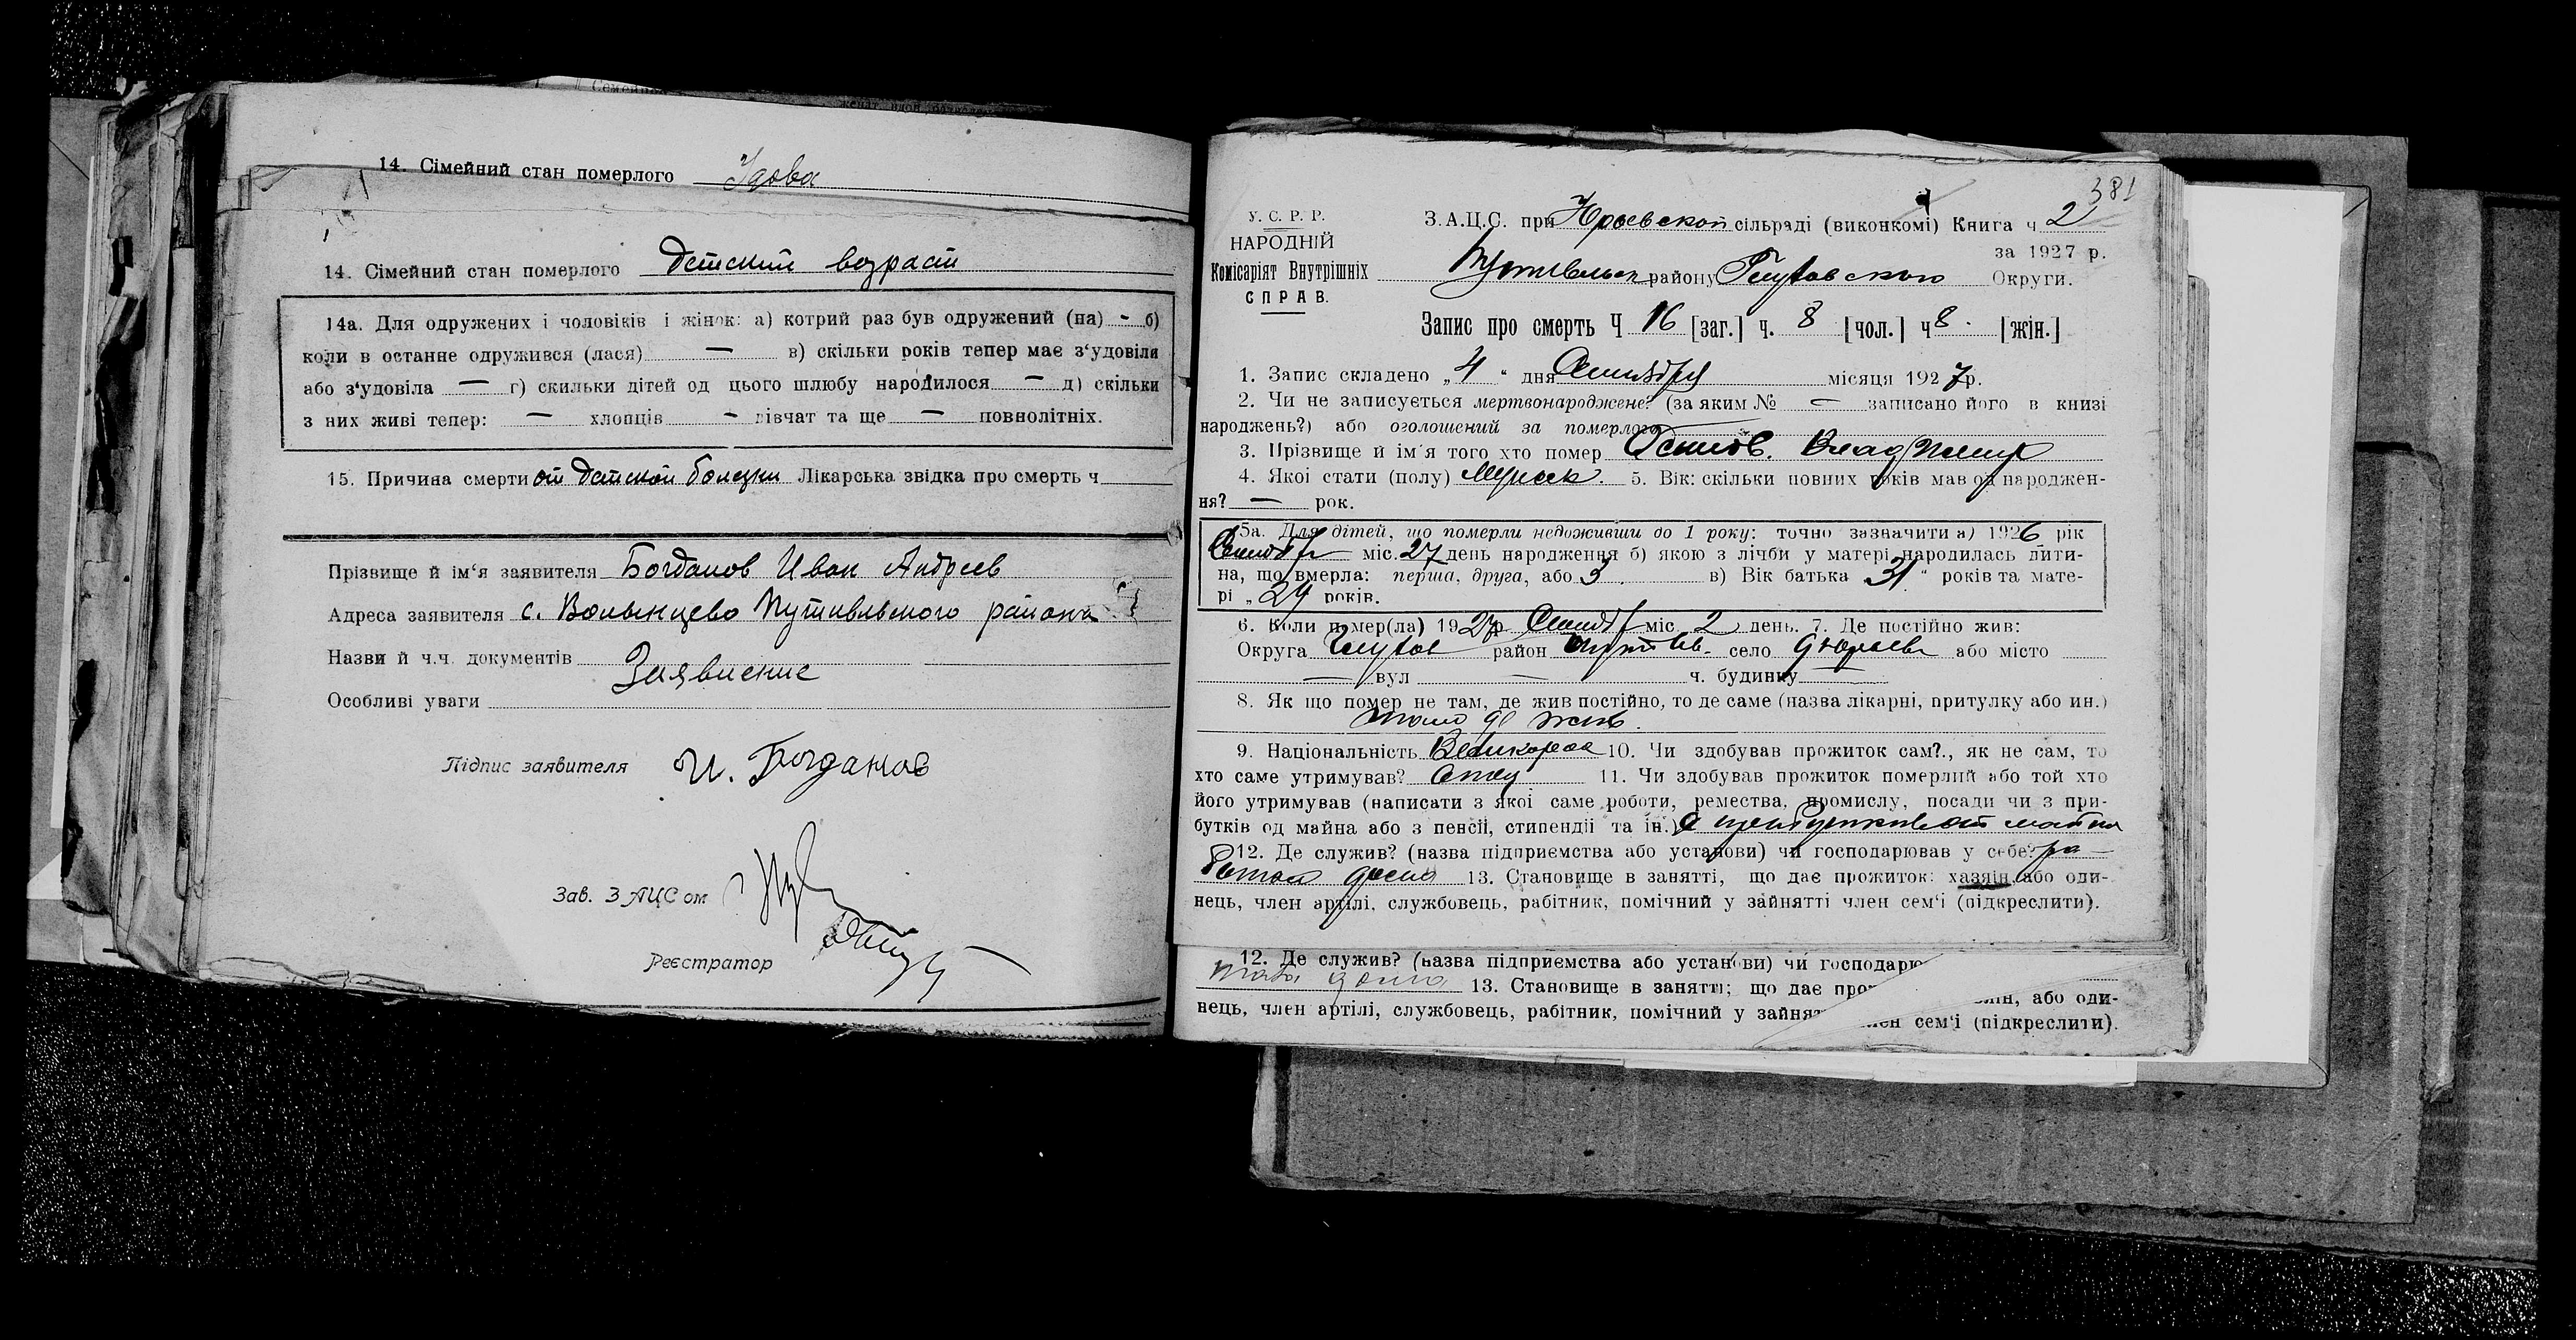 14. Сімейний стан померлого Удова
14. Сімейний стан померлого Детский возраст
14а. Для одружених і чоловіків і жінок: а) котрий раз був одружений (на) - б)
коли в останне одружився (лася) — в) скільки років тепер має з'удовіла
або з'удовіла — г) скильки дітей од цього шлюбу народилося — д) скільки
з них живі тепер: — хлопців — дівчат та ще — повнолітніх.
15. Причина смерти от детской болезни Лікарська звідка про смерть ч
Прізвище й ім'я заявителя Богданов Иван Андреев
Адреса заявителя с. Волынцево Путивльского района
Назви й ч.ч. документів Заявление
Особливі уваги
Підпис заявителя И. Богданов
Зав. ЗАЦС ом
Реєстратор
381
У. С. Р. Р.
НАРОДНІЙ
Комісаріят Внутрішніх
СПРАВ.
З.А.Ц.С. при Юрьевской сільраді (виконкомі) Книга ч 2
за 1927 р.
Путивльск району Глуховского Округи.
Запис про смерть Ч 16 [заг.] ч. 8 [чол.] ч 8. [жін.]
1. Запис складено „4“ дня Сентября місяця 1927р.
2. Чи не записується мертвонароджене? (за яким № — записано його в книзі
народжень?) або оголошений за померлого
3. Прізвище й ім'я того хто помер Осипов. Владимир
4. Якої стати (полу) Мужск. 5. Вік: скільки повних років мав од народжен-
ня? — рок.
5а. Для дітей, що померли недоживши до 1 року: точно зазначити а) 1926 рік
міс. 27 день народження б) якою з лічби у матері народилась дити-
на, що вмерла: перша, друга, або 3. в) Вік батька „31“ років та мате-
рі „29 років.
6. Коли помер(ла) 1927р міс 2 день. 7. Де постійно жив:
Округа Глухов район Путив- село Юрьев або місто
— вул — ч. будинку —
8. Як що помер не там, де жив постійно, то де саме (назва лікарні, притулку або ин.)
там де жив.
9. Національність Великоросс 10. Чи здобував прожиток сам?., як не сам, то
хто саме утримував? Отец 11. Чи здобував прожиток померлий або той хто
його утримував (написати з якої саме роботи, ремества, промислу, посади чи з при-
бутків од майна або з пенсії, стипендії та ін.)
12. Де служив? (назва підприємства або установи) чи господарював у себе? ра-
ботал дома 13. Становище в занятті, що дає прожиток: хазяін, або оди-
нець, член артілі, службовець, рабітник, помічний у зайнятті член сем'і (підкреслити).
12. Де служив? (назва підприємства або установи) чи господарю
дома 13. Становище в занятті; що дає про
або оди-
нець, член артілі, службовець, рабітник, помічний у зайнят
сем'і (підкреслити).